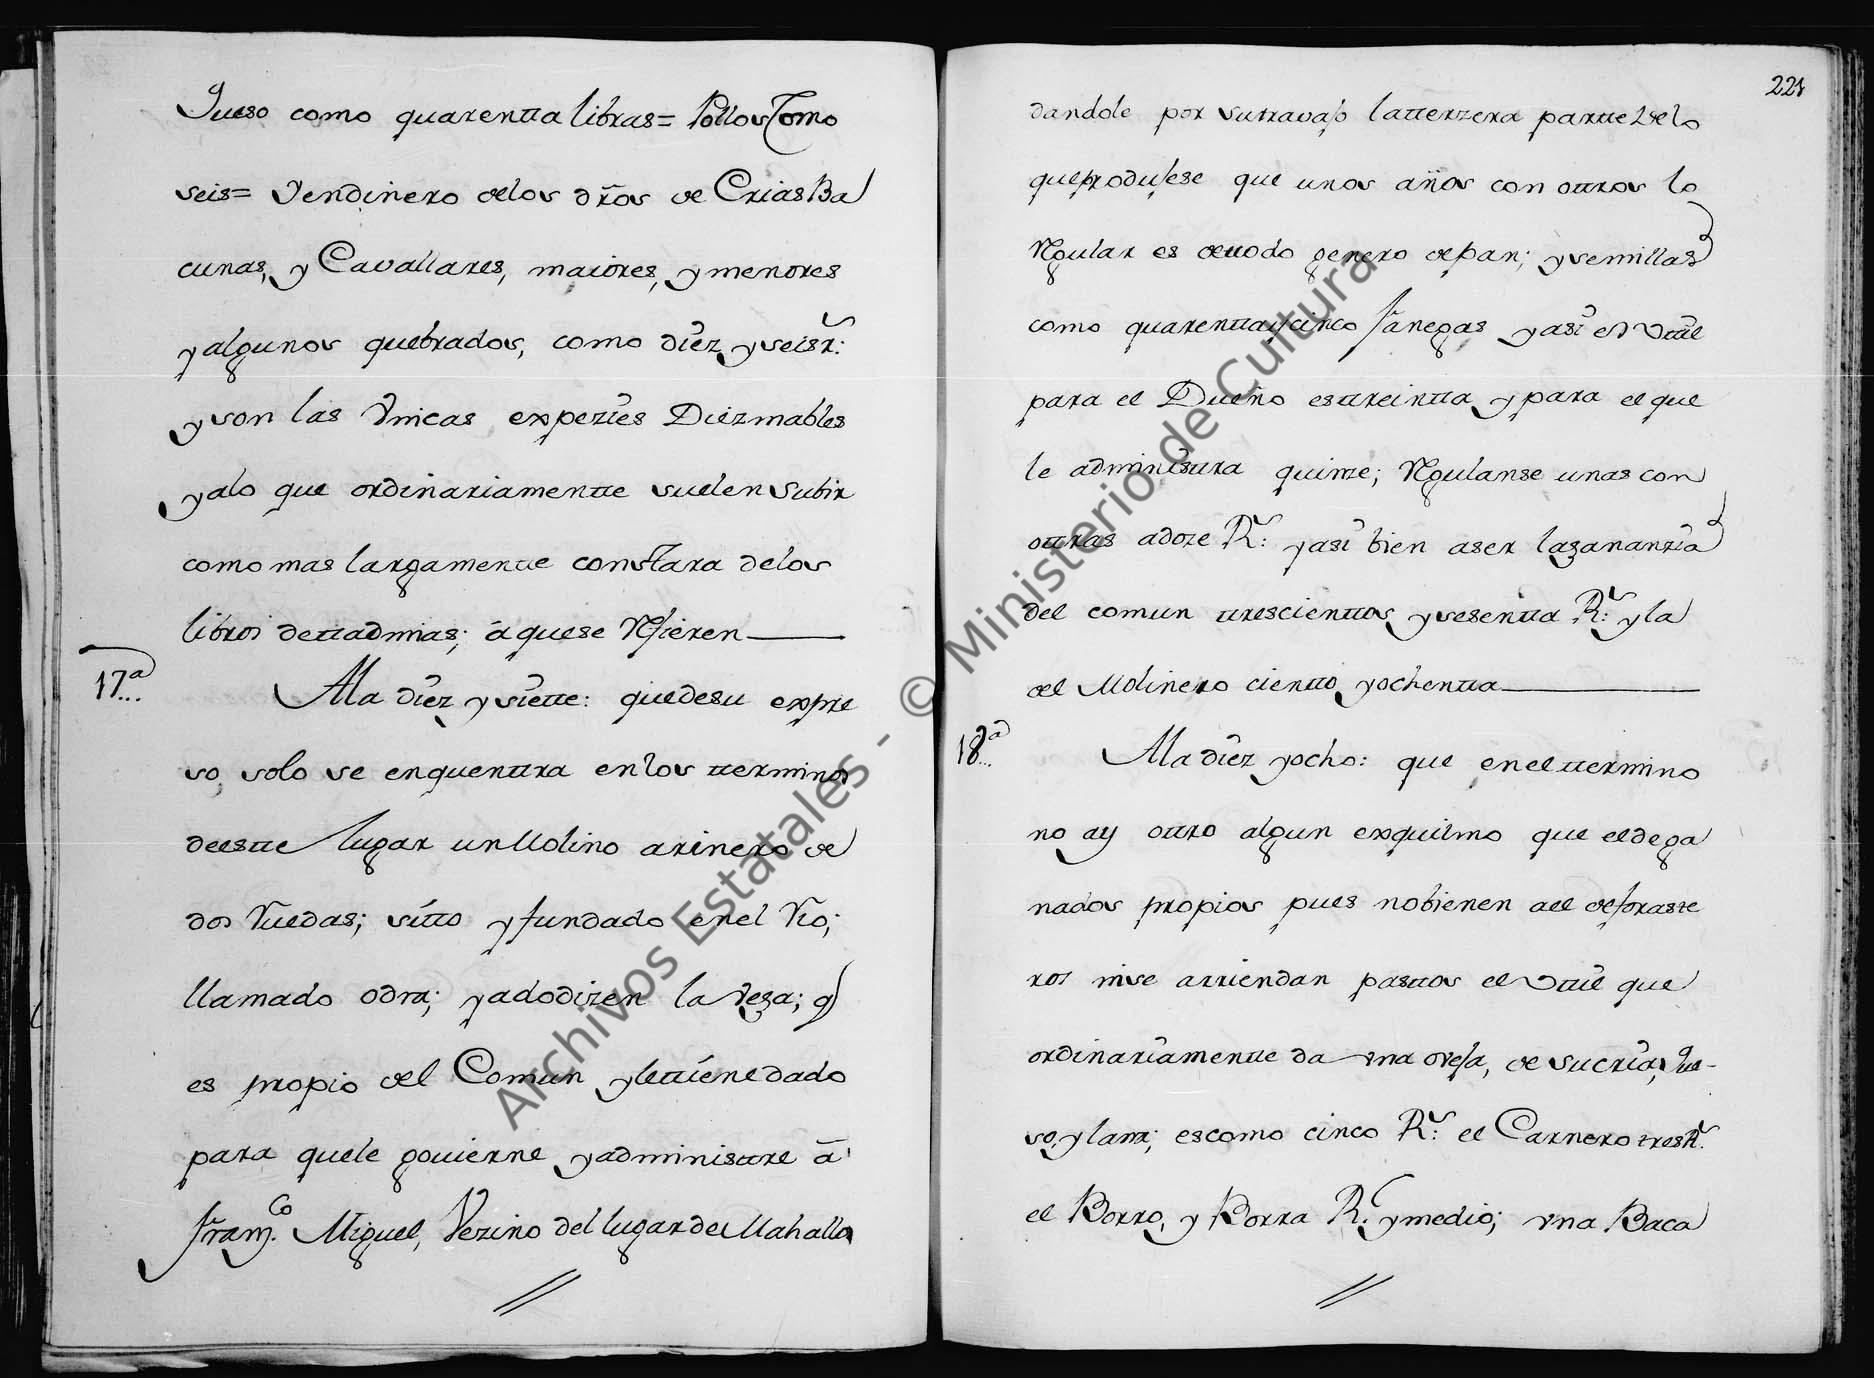 Queso como quarentta libras= Pollos Como
seis= Yendinero delos dr̃os de Crias Ba
cunas, y Cavallares, maiores, y menores
yalgunos quebrados, como diez y seis r.ˢ:
y son las Vnicas expezies Diezmables
yalo que ordinariamentte suelen subir
como mas largamentte constara delos
libros dettadmias; á quese Refieren
17.ª
Ala diez y siette: quedesu expre
so, solo se enquenttra enlos tterminos
deestte lugar unMolino arinero de
dos Ruedas; sitto y fundado enel Rio;
llamado odra; yadodizen la Vega; q
es propio del Comun ylettiene dado
para quele govierne yadministtre á
Fran.ᶜᵒ Miguel, Vezino del lugar de Mahallo
221
dandole por sutravajo latterzera partte delo
queprodujese que unos años con ottros lo
Regular es dettodo genero depan; ysemillas
como quarenttaycinco fanegas yasi el Vttil
para el Dueño esttreintta y para el que
le administtra quinze; Regulanse unas con
ottras adoze R.ˢ: yasi bien aser laganancia
del comun ttrescienttos y sesentta R.ˢ: y la
del Molinero cientto, yochentta
18.ª
Ala diez yocho: que enelttermino
no ay ottro algun exquilmo que eldega
nados propios pues nobienen ael deforaste
ros nise arriendan pasttos el Vttil que
ordinariamentte da vna oveja, de sucria, que-
so, y lana; escomo cinco R.ˢ: el Carnero tres R.ˢ
el Borro, y Borra R.ˡ ymedio; vna Baca
Archivos Estatales - © Ministerio de Cultura